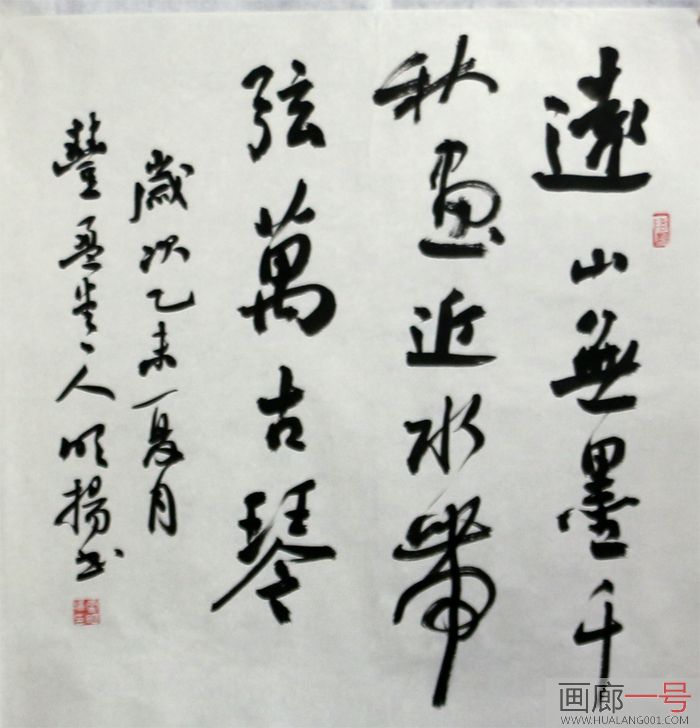 遠山無墨千
秋畫近水帶
弦萬古琴
歲次乙未夏月
明揚書
画廊一号
WWW.HUALANG001.COM